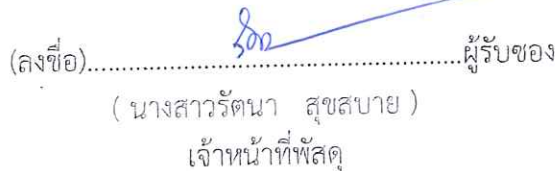 (ลงชื่อ)....................................................ผู้รับซอง
( นางสาวรัตนา สุขสบาย )
เจ้าหน้าที่พัสดุ